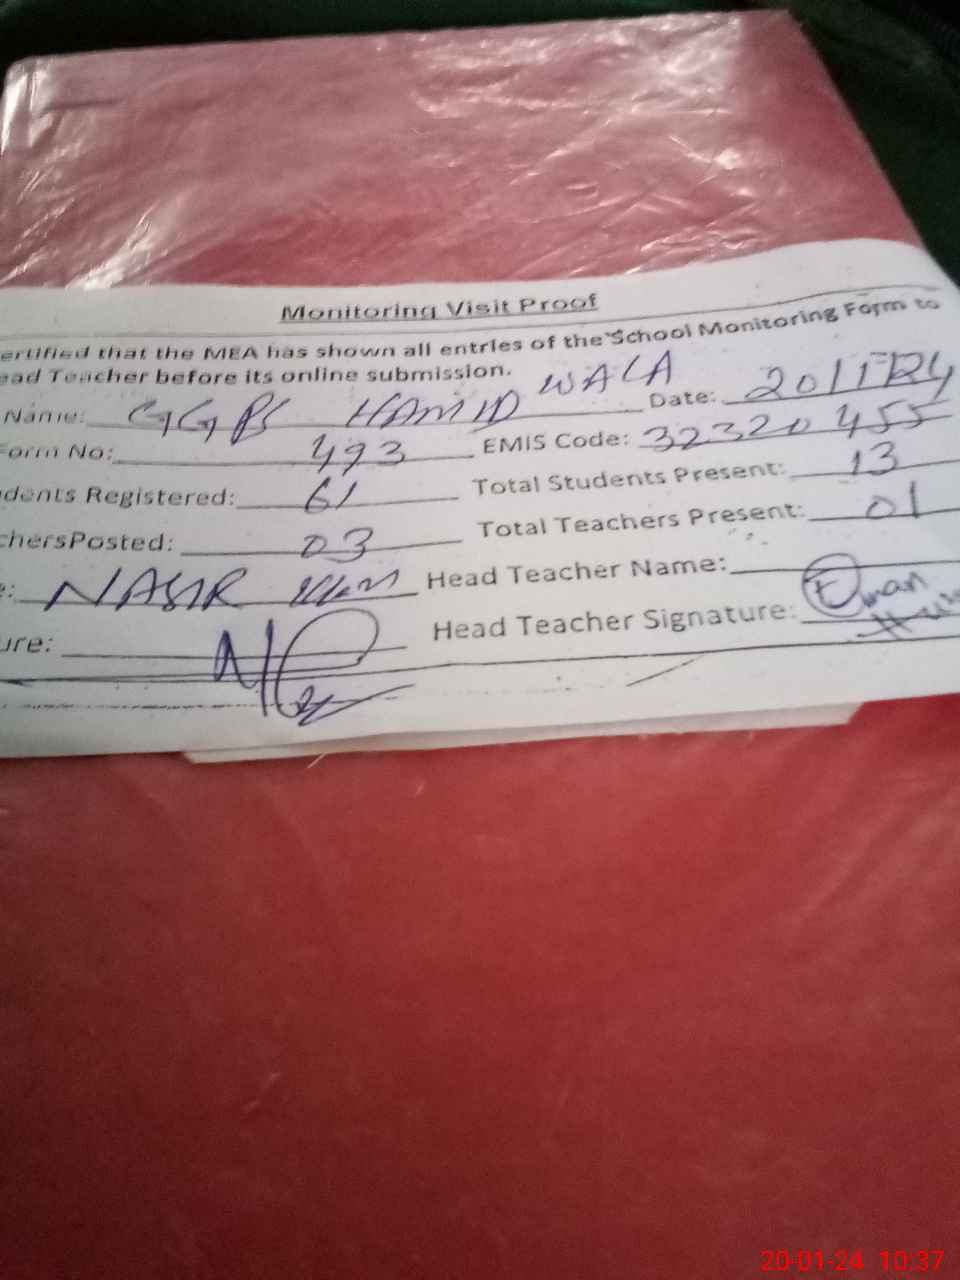 Monitoring Visit Proof
ertified that the MEA has shown all entries of the School Monitoring Form to
ead Teacher before its online submission.
Name: GGPS HAMID WALA Date: 20/1/24
Form No: 493 EMIS Code: 32320455
dents Registered: 61 Total Students Present: 13
chersPosted: 03 Total Teachers Present: 01
e: NASIR Head Teacher Name:
ure: Head Teacher Signature: Eman
20-01-24 10:37